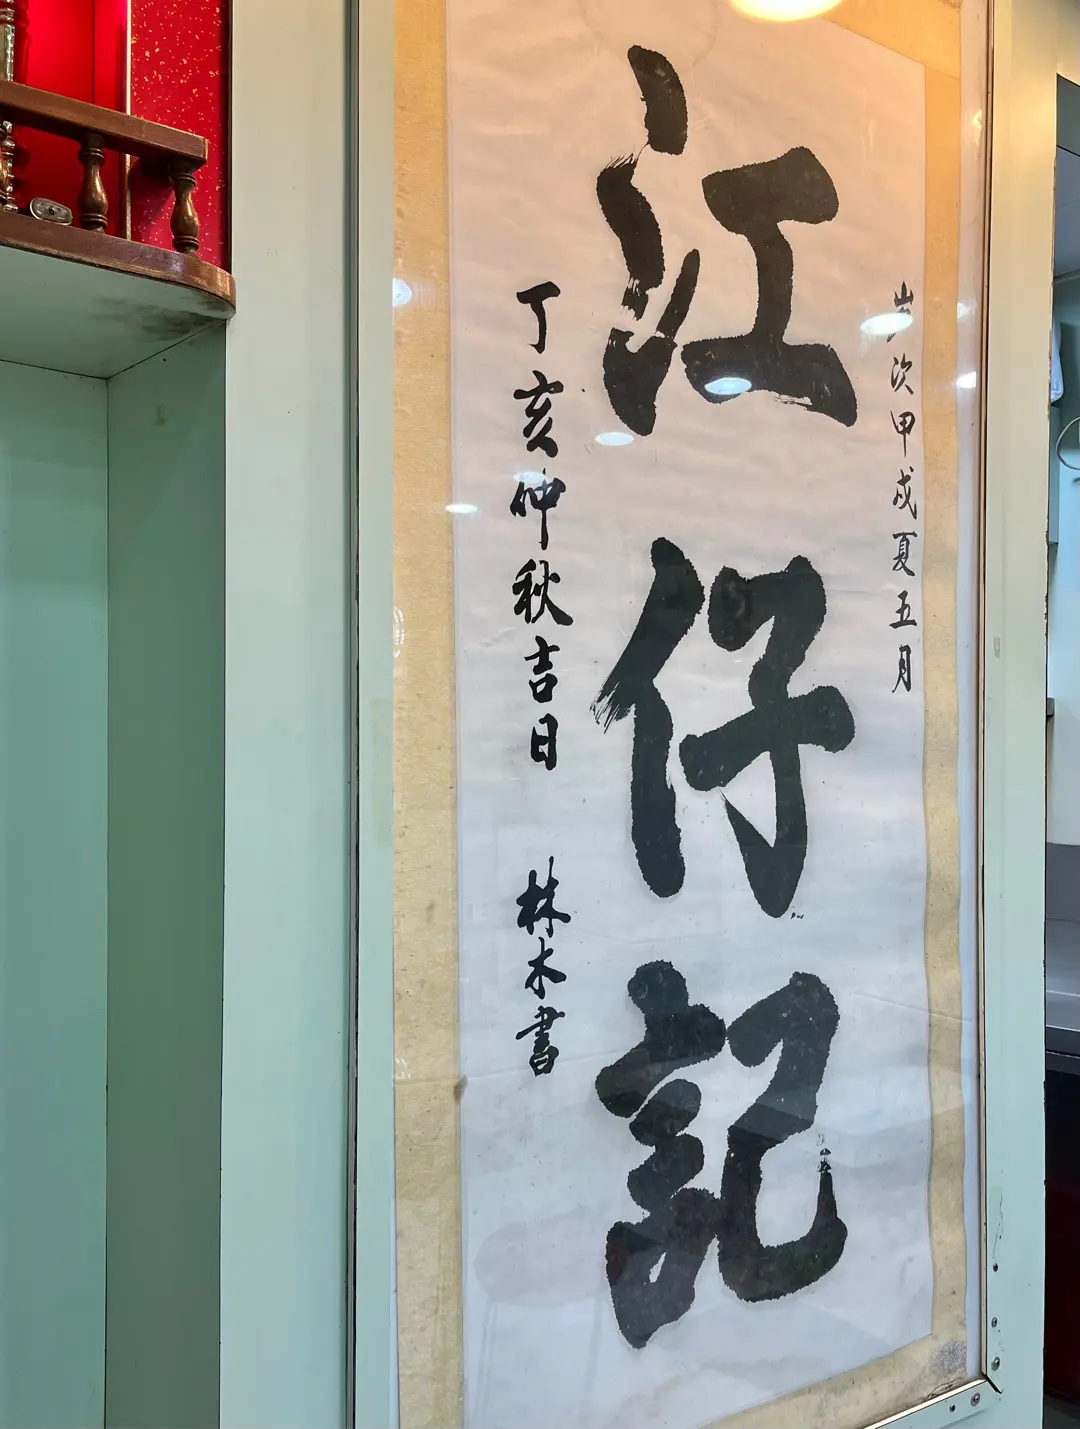 歲次甲戌夏五月
江仔記
丁亥仲秋吉日 林木書